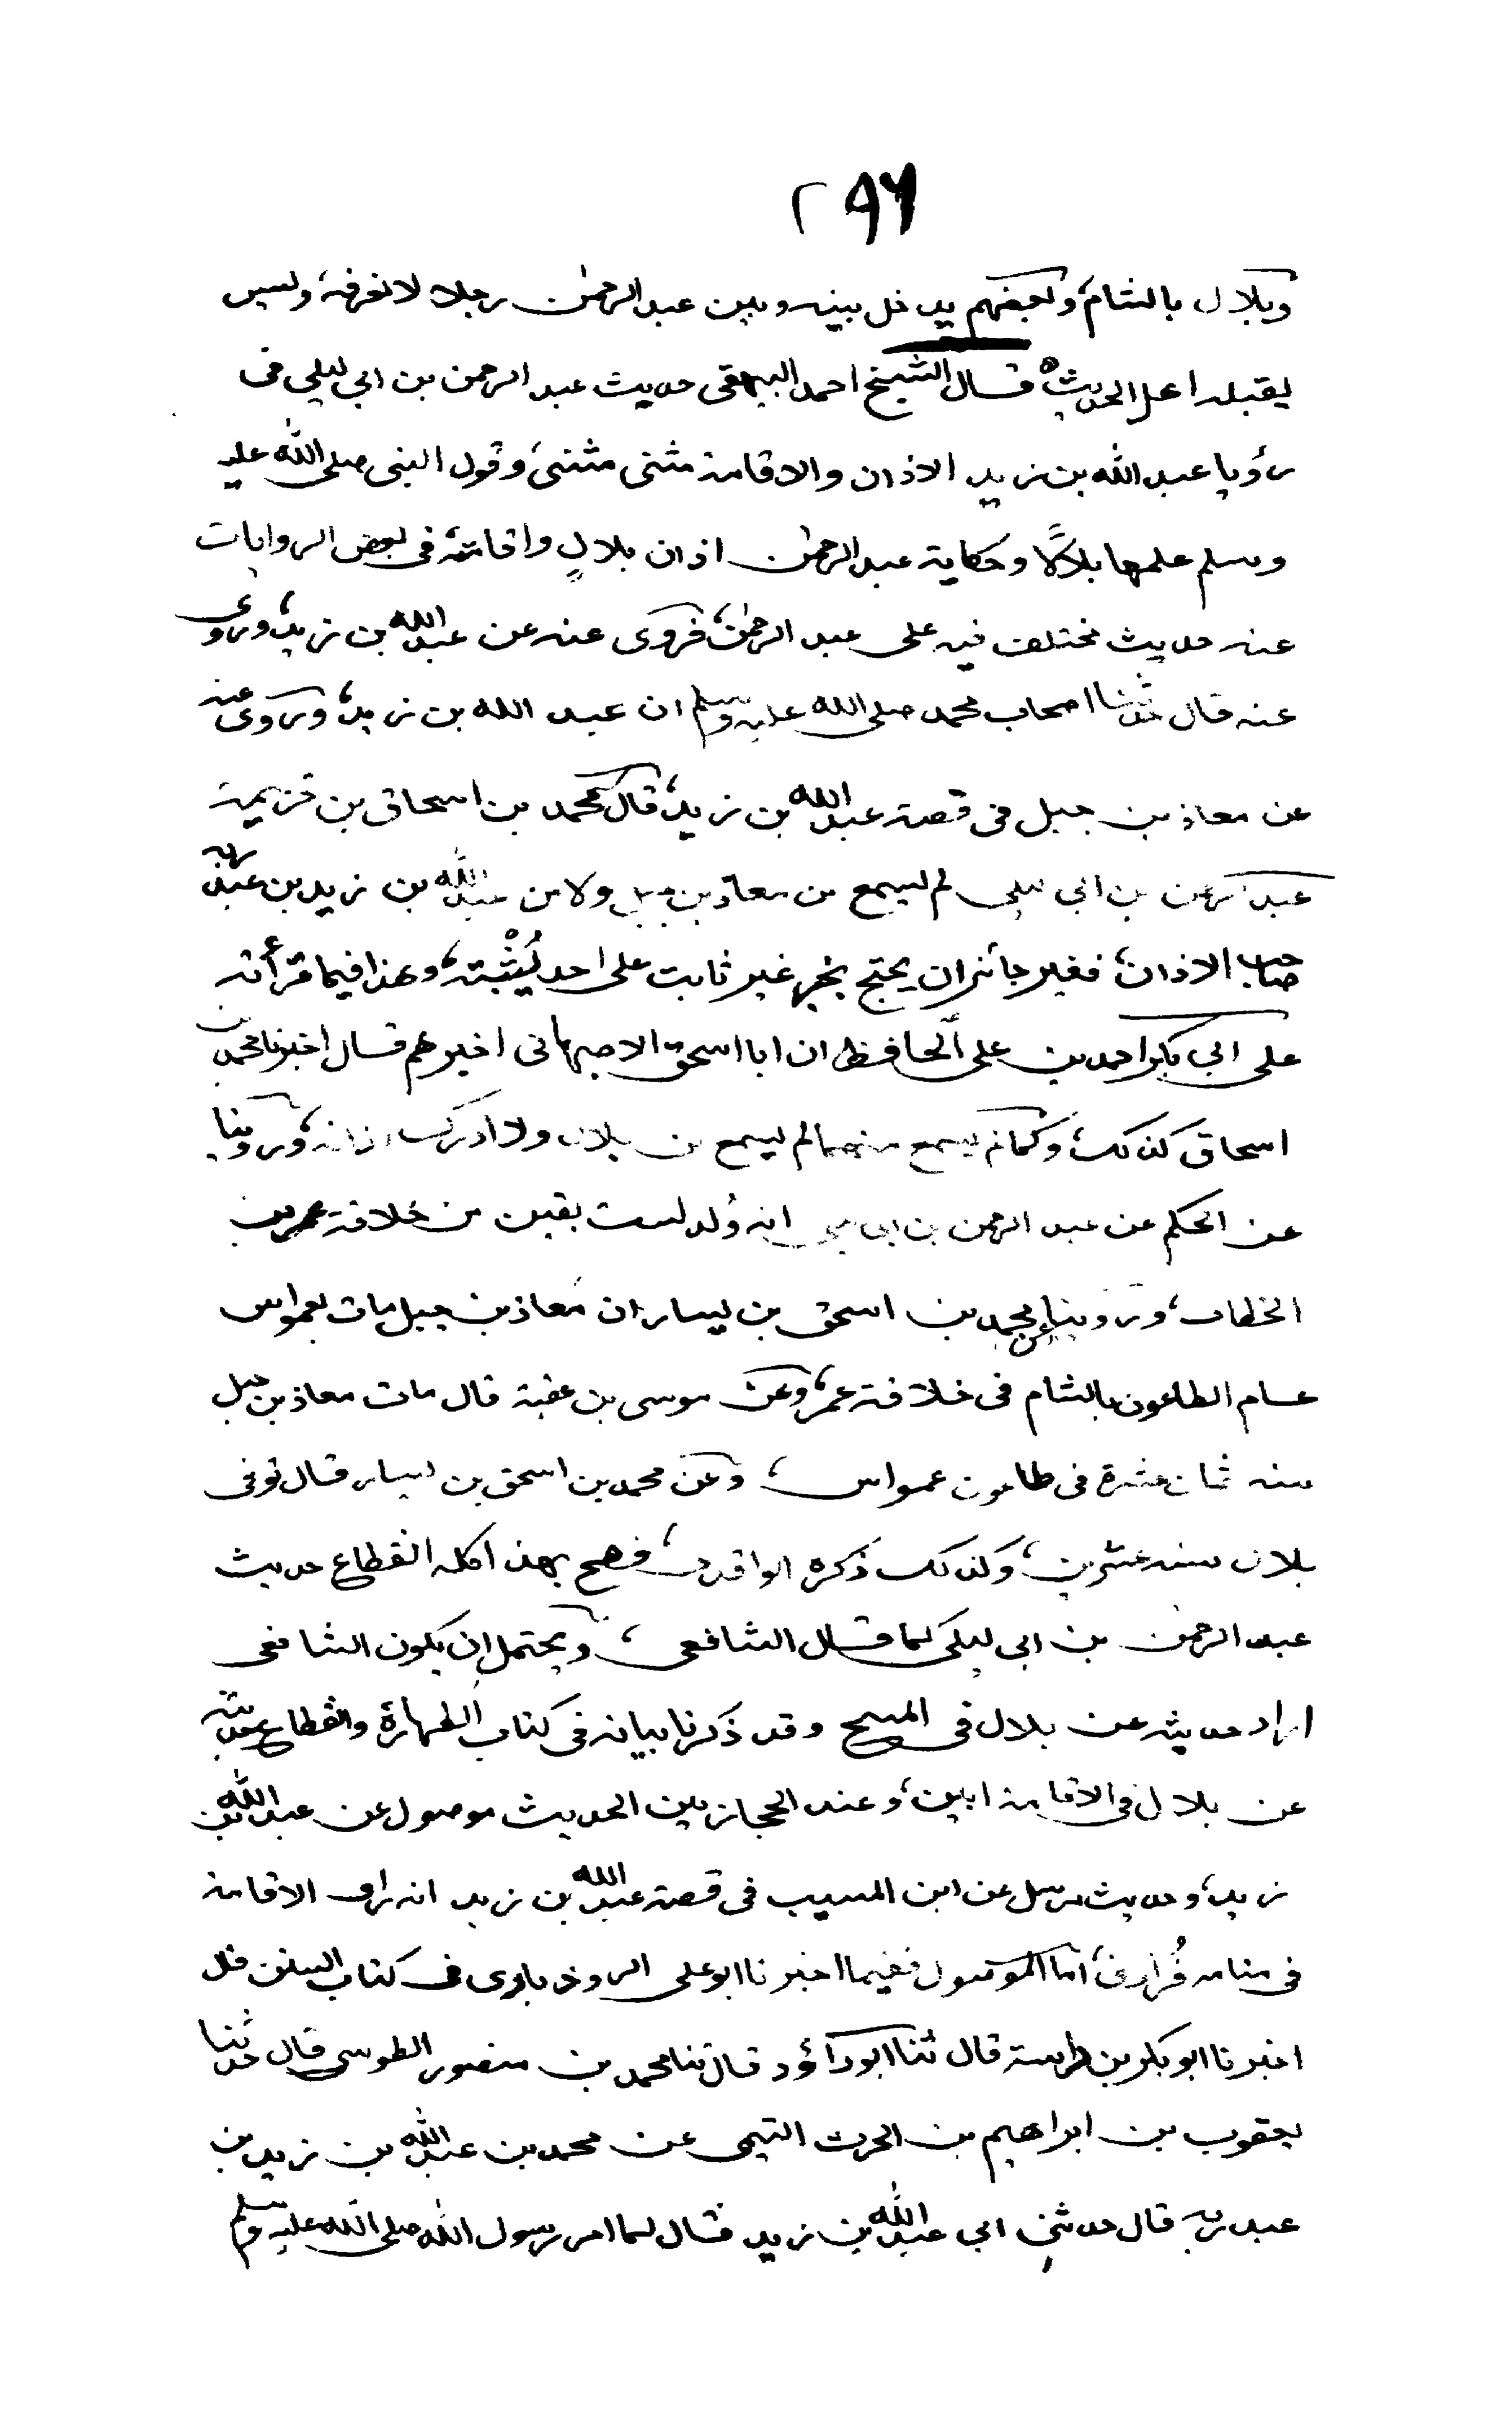 ٢٩٦
وبلال بالشام، وبعضهم يدخل بينه وبين عبدالرحمٰن رجلا لانعرفه، وليس
يقبله اهل الحديث ه قال الشيخ احمد البيهقي حديث عبد الرحمن بن ابي ليلى في
رؤيا عبد الله بن زيد الاذان والاقامة مثنى مثنى، وقول النبي صلى الله عليه
وسلم علمها بلالًا وحكاية عبد الرحمٰن اذان بلالٍ واقامته، في بعض الروايات
عنه حديث مختلف فيه على عبد الرحمٰن، فروى عنه عن عبد الله بن زيد، وروى
عنه قال حدثنا اصحاب محمد صلى الله عليه وسلم ان عبد الله بن زيد، وروى عنه
عن معاذ بن جبل في قصة عبد الله بن زيد، قال محمد بن اسحاق بن خزيمة
عبد الرحمن بن ابي ليلى لم يسمع من معاذ بن جبل ولا من عبد الله بن زيد بن عبد ربه
صاحب الاذان، فغير جائز ان يحتج بخبر غير ثابت على احد يُثْبته، وهذا فيما قرأته
على ابي بكر احمد بن على الحافظ ان ابا اسحق الاصبهاني اخبرهم قال اخبرنا محمد بن
اسحاق كذلك، وكما لم يسمع منهما لم يسمع من بلال ولا ادرك اذانه، وروينا
عن الحكم عن عبد الرحمن بن ابي ليلى انه وُلد لست بقين من خلافة عمر بن
الخطاب، وروينا عن محمد بن اسحق بن يسار ان معاذ بن جبل مات بعمواس
عام الطاعون بالشام في خلافة عمر، وعن موسى بن عقبة قال مات معاذ بن جبل
سنه ثمان عشرة في طاعون عمواس، وعن محمد بن اسحق بن يسار قال توفى
بلال سنه عشرين، وكذلك ذكره الواقدى، فصح بهذا كله انقطاع حديث
عبد الرحمٰن بن ابي ليلى كما قال الشافعى، ويحتمل ان يكون الشافعى
اراد حديثه عن بلال في المسح وقد ذكرنا بيانه في كتاب الطهارة وانقطاع حديثه
عن بلال في الاقامة ابين، وعند الحجازيين الحديث موصول عن عبد الله بن
زيد، وحديث مرسل عن ابن المسيب في قصة عبد الله بن زيد انه راى الاقامة
في منامه فُرادى، اما الموصول ففيما اخبرنا ابو على الروذباري فى كتاب السنن قال
اخبرنا ابو بكر بن داسة قال ثنا ابوداؤد قال ثنا محمد بن منصور الطوسي قال حدثنا
يعقوب بن ابراهيم بن الحرث التيمى عن محمد بن عبد الله بن زيد بن
عبد ربه قال حدثنى ابي عبد الله بن زيد قال لما امر رسول الله صلى الله عليه وسلم